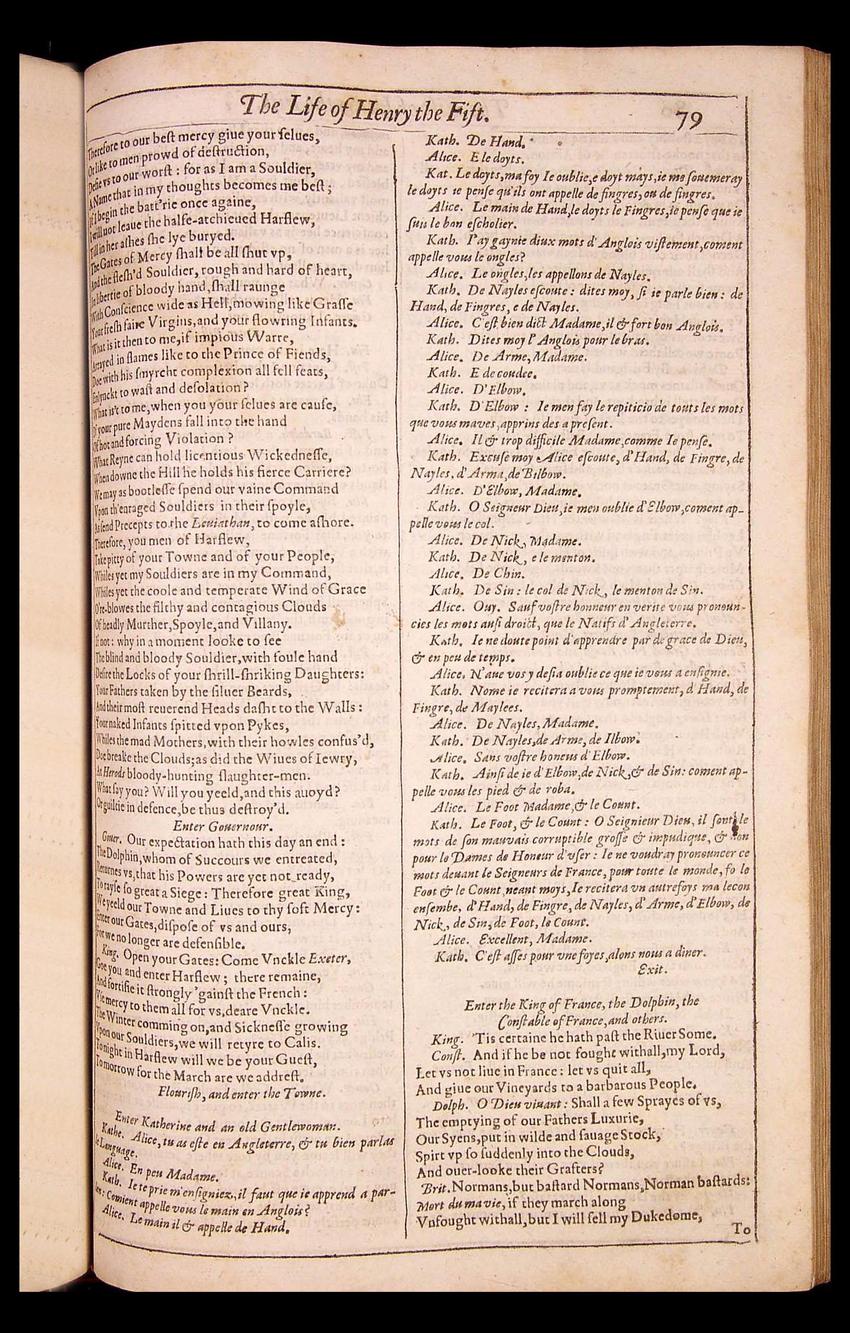 The Life of Henry the Fift. 79
Therefore to our beſt mercy giue your ſelues,
Or like to men prowd of deſtruction,
Defie vs to our worſt : for as I am a Souldier,
A Name that in my thoughts becomes me beſt ;
If I begin the batt'rie once againe,
I will not leaue the halfe-atchieued Harflew,
Till in her aſhes ſhe lye buryed.
The Gates of Mercy ſhall be all ſhut vp,
And the fleſh'd Souldier, rough and hard of heart,
In libertie of bloody hand, ſhall raunge
With Conſcience wide as Hell, mowing like Graſſe
Your freſh faire Virgins, and your flowring Infants.
What is it then to me, if impious Warre,
Arrayed in flames like to the Prince of Fiends,
Doe with his ſmyrcht complexion all fell feats,
Enlynckt to waſt and deſolation ?
What is't to me, when you your ſelues are cauſe,
If your pure Maydens fall into the hand
Of hot and forcing Violation ?
What Reyne can hold licentious Wickedneſſe,
When downe the Hill he holds his fierce Carriere?
We may as bootleſſe ſpend our vaine Command
Vpon th'enraged Souldiers in their ſpoyle,
As ſend Precepts to the Leuiathan, to come aſhore.
Therefore, you men of Harflew,
Take pitty of your Towne and of your People,
Whiles yet my Souldiers are in my Command,
Whiles yet the coole and temperate Wind of Grace
O're-blowes the filthy and contagious Clouds
Of headly Murther, Spoyle, and Villany.
If not : why in a moment looke to ſee
The blind and bloody Souldier, with foule hand
Deſire the Locks of your ſhrill-ſhriking Daughters:
Your Fathers taken by the ſiluer Beards,
And their moſt reuerend Heads daſht to the Walls :
Your naked Infants ſpitted vpon Pykes,
Whiles the mad Mothers, with their howles confus'd,
Doe breake the Clouds; as did the Wiues of Iewry,
At Herods bloody-hunting ſlaughter-men.
What ſay you? Will you yeeld, and this auoyd?
Or guiltie in defence, be thus deſtroy'd.
Enter Gouernour.
Gouer. Our expectation hath this day an end :
The Dolphin, whom of Succours we entreated,
Returnes vs, that his Powers are yet not ready,
To rayſe ſo great a Siege : Therefore great King,
We yeeld our Towne and Liues to thy ſoft Mercy :
Enter our Gates, diſpoſe of vs and ours,
For we no longer are defenſible.
King. Open your Gates : Come Vnckle Exeter,
Goe you and enter Harflew ; there remaine,
And fortifie it ſtrongly 'gainſt the French :
Vſe mercy to them all for vs, deare Vnckle.
The Winter comming on, and Sickneſſe growing
Vpon our Souldiers, we will retyre to Calis.
To night in Harflew will we be your Gueſt,
To morrow for the March are we addreſt.
Flouriſh, and enter the Towne.
Enter Katherine and an old Gentlewoman.
Kathe. Alice, tu as eſte en Angleterre, & tu bien parlas
le Language.
Alice. En peu Madame.
Kath. Ie te prie m'enſigniez, il faut que ie apprend a par-
len : Comient appelle vous le main en Anglois ?
Alice. Le main il & appelle de Hand.
Kath. De Hand.
Alice. E le doyts.
Kat. Le doyts, ma foy Ie oublie, e doyt mays, ie me ſouemeray
le doyts ie penſe qu'ils ont appelle de fingres, ou de fingres.
Alice. Le main de Hand, le doyts le Fingres, ie penſe que ie
ſuis le bon eſcholier.
Kath. I'ay gaynie diux mots d'Anglois viſtement, coment
appelle vous le ongles?
Alice. Le ongles, les appellons de Nayles.
Kath. De Nayles eſcoute : dites moy, ſi ie parle bien : de
Hand, de Fingres, e de Nayles.
Alice. C'eſt bien dict Madame, il & fort bon Anglois.
Kath. Dites moy l'Anglois pour le bras.
Alice. De Arme, Madame.
Kath. E de coudee.
Alice. D'Elbow.
Kath. D'Elbow : Ie men fay le repiticio de touts les mots
que vous maves, apprins des a preſent.
Alice. Il & trop difficile Madame, comme Ie penſe.
Kath. Excuſe moy Alice eſcoute, d'Hand, de Fingre, de
Nayles, d'Arma, de Bilbow.
Alice. D'Elbow, Madame.
Kath. O Seigneur Dieu, ie men oublie d'Elbow, coment ap-
pelle vous le col.
Alice. De Nick, Madame.
Kath. De Nick, e le menton.
Alice. De Chin.
Kath. De Sin : le col de Nick, le menton de Sin.
Alice. Ouy. Sauf voſtre honneur en verite vous pronoun-
cies les mots auſi droict, que le Natifs d'Angleterre.
Kath. Ie ne doute point d'apprendre par de grace de Dieu,
& en peu de temps.
Alice. N'aue vos y deſia oublie ce que ie vous a enſignie.
Kath. Nome ie recitera a vous promptement, d Hand, de
Fingre, de Maylees.
Alice. De Nayles, Madame.
Kath. De Nayles, de Arme, de Ilbow.
Alice. Sans voſtre honeus d'Elbow.
Kath. Ainſi de ie d'Elbow, de Nick, & de Sin: coment ap-
pelle vous les pied & de roba.
Alice. Le Foot Madame, & le Count.
Kath. Le Foot, & le Count : O Seignieur Dieu, il ſont le
mots de ſon mauvais corruptible groſſe & impudique, & non
pour le Dames de Honeur d'vſer : Ie ne voudray pronouncer ce
mots deuant le Seigneurs de France, pour toute le monde, fo le
Foot & le Count, neant moys, Ie recitera vn autrefoys ma lecon
enſembe, d'Hand, de Fingre, de Nayles, d'Arme, d'Elbow, de
Nick, de Sin, de Foot, le Count.
Alice. Excellent, Madame.
Kath. C'eſt aſſes pour vne foyes, alons nous a diner.
Exit.
Enter the King of France, the Dolphin, the
Conſtable of France, and others.
King. 'Tis certaine he hath paſt the Riuer Some.
Conſt. And if he be not fought withall, my Lord,
Let vs not liue in France : let vs quit all,
And giue our Vineyards to a barbarous People.
Dolph. O Dieu viuant : Shall a few Sprayes of vs,
The emptying of our Fathers Luxurie,
Our Syens, put in wilde and ſauage Stock,
Spirt vp ſo ſuddenly into the Clouds,
And ouer-looke their Grafters?
Brit. Normans, but baſtard Normans, Norman baſtards:
Mort du ma vie, if they march along
Vnfought withall, but I will ſell my Dukedome,
To